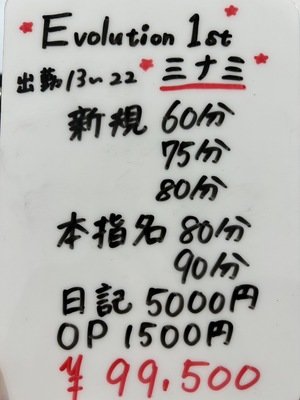 Evolution 1st
出勤13~22 ミナミ
新規 60分
75分
80分
本指名 80分
90分
日記 5000円
OP 1500円
¥ 99,500